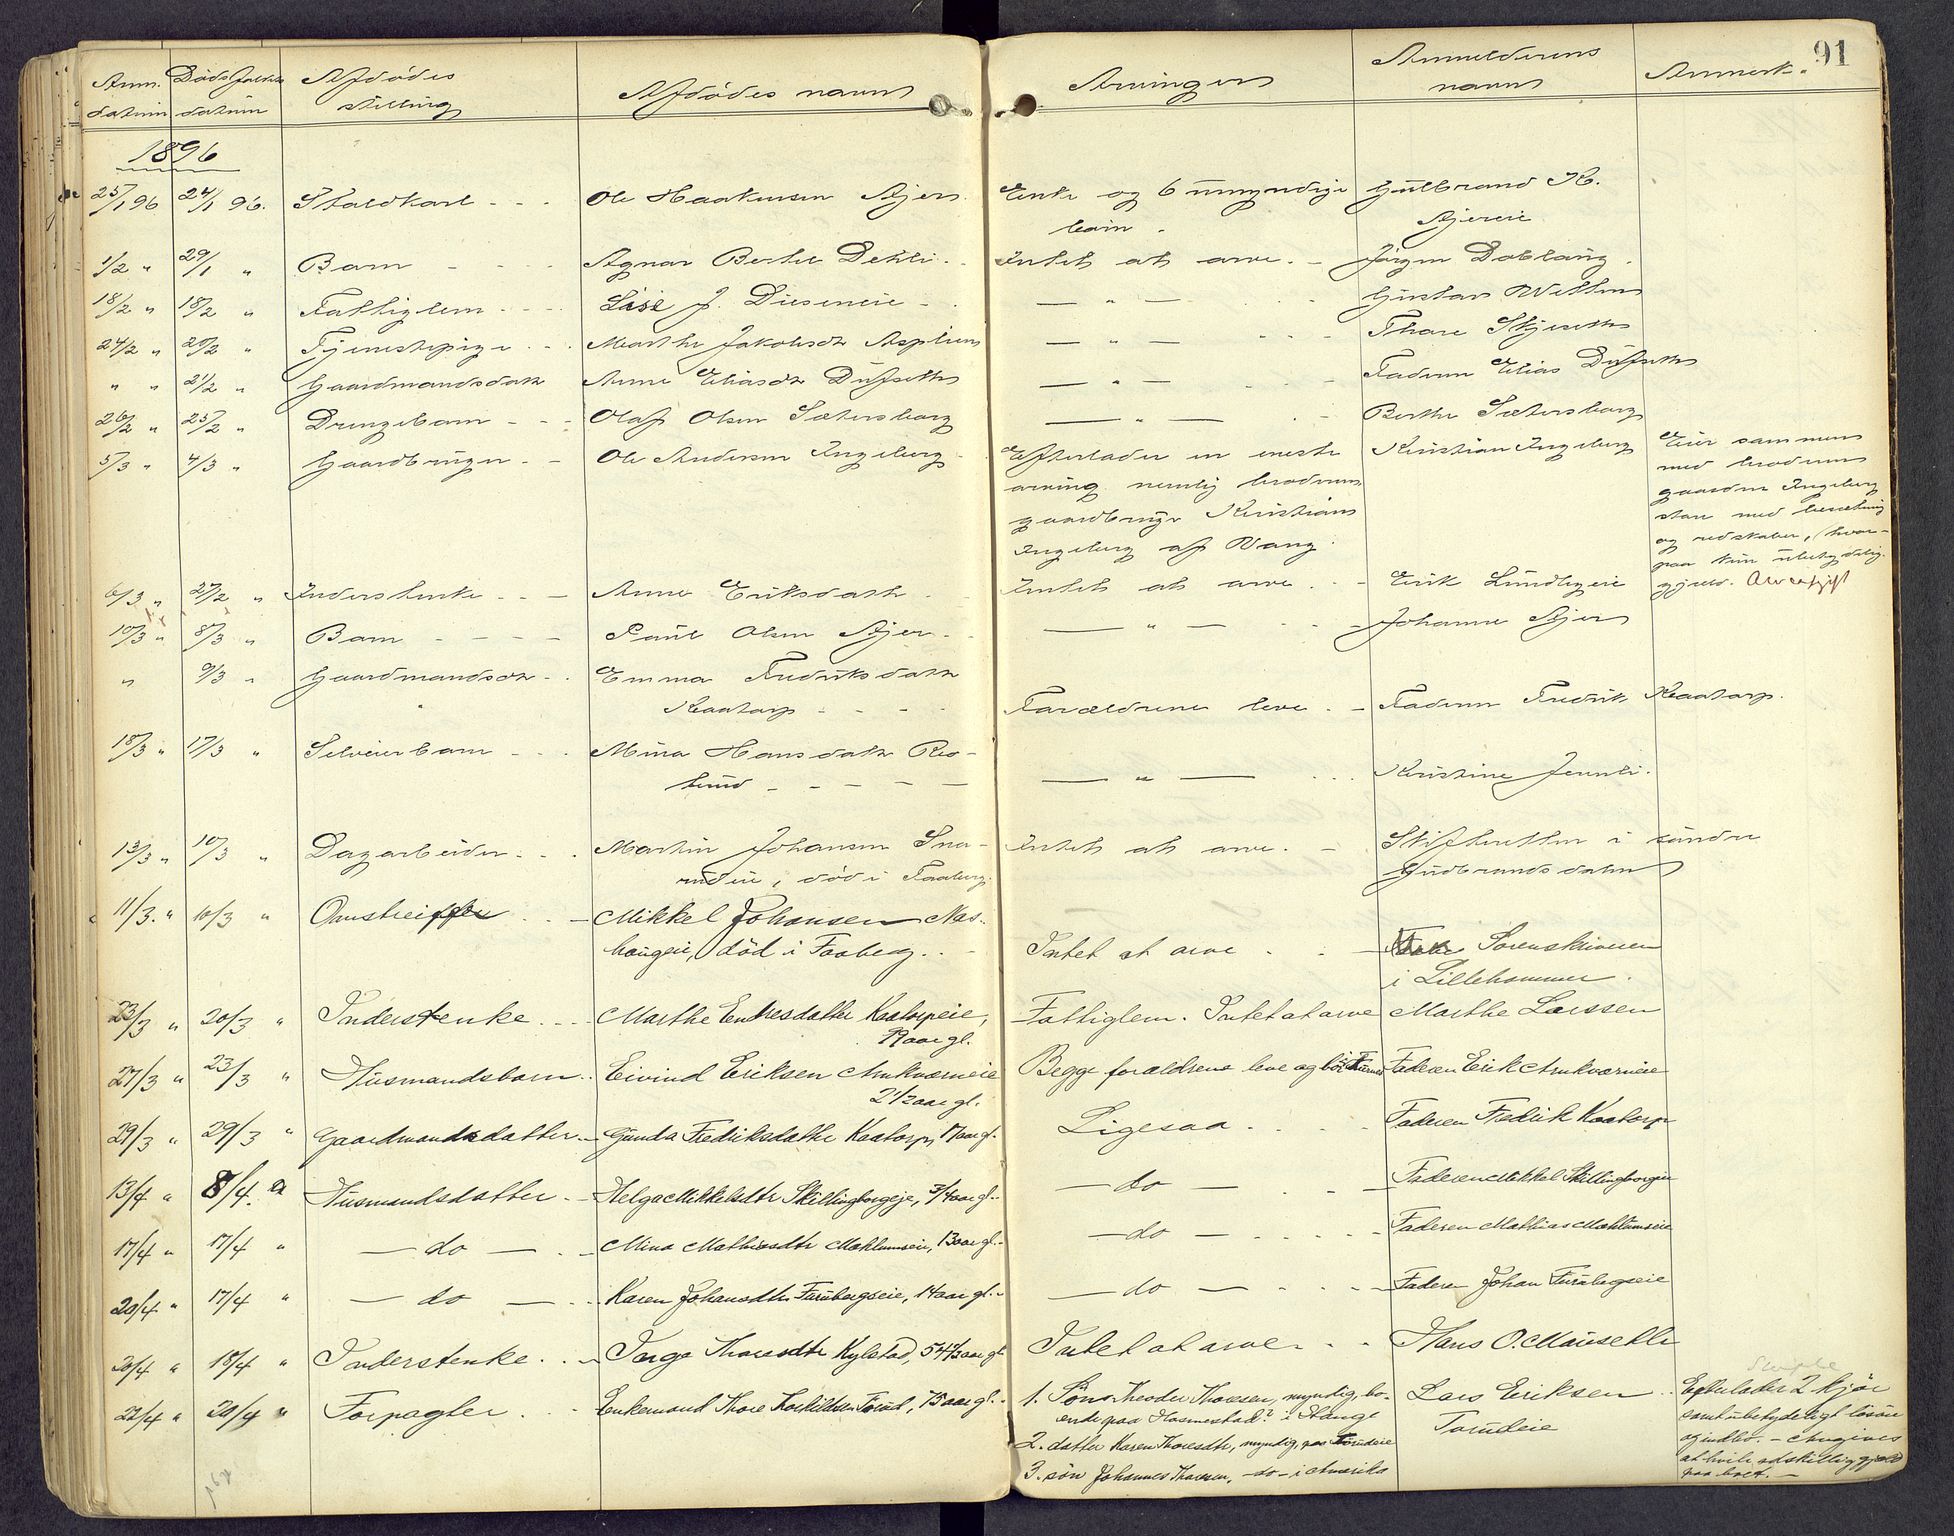 91
Anm. datum
Døds datum
Afdødes stilling
Afdødes navn
Arvinger
Anmelderens navn
Anmerk.
1896
25/1 96 24/1 96. Staldkarl - - - Ole Haakensen Ajer. Enke og 6 umyndige Gulbrand K.
barn. Ajereie
1/2 " 29/1 " Barn - - - Agnar Bertel Dehli. - Intet at arve. - Jørgen
18/2 " 18/2 " Fattiglem - - - Lise J. - — " — Gustav
24/2 " 20/2 " Tjenestepige - - Marthe Jakobsdtr — " — Thore Skjeseth
" " 21/2 " Gaardmandsdatr Anne Eliasdtr Dufseth — " — Faderen Elias Dufseth
26/2 " 25/2 " Drengebarn - - - Olaf Olsen Sætersborg — " — Berthe Sætersborg
5/3 " 4/3 " Gaardbruger - - Ole Andersen Ingeberg - Efterlader en eneste Kristian Ingeberg Eier sammen
arving nemlig broderen med broderen
gaardbruger Kristian gaarden Ingeberg
Ingeberg af Vang. store med besetning
og redskaber, (hvor-
paa kun ubetydelig
6/3 " 27/2 " Inderstenke - - - Anne Eriksdatr - Intet at arve. - - Erik Lundbyeie gjæld. Arveafgift
10/3 " 8/3 " Barn - - - - Paul Olsen Ajer - — " — Johanne Ajer
" 9/3 " Gaardmandsdtr - - Emma Fredriksdatr
Kaatorp - - - - Forældrene leve. - Faderen Fredrik Kaatorp.
18/3 " 17/3 " Selveierbarn - - - Mina Hansdatr Ro-
lund - - - - - — " — Kristine Jennli.
13/3 " 10/3 " Dagarbeider - - - Martin Johansen Sna-
rudeie, død i Faaberg. Intet at arve. - Skifteretten i søndre
Gudbrandsdalen
11/3. " 10/3 " - - - Mikkel Johansen Nas-
haugeie, død i Faaberg. . - Intet at arve . . - Sorenskriveren
i Lillehammer.
23/3 " 20/3 " Inderstenke. - - Marthe Endresdatter Kaatorpeie,
79 aar gl. Fattiglem. Intet at arve Marthe Larssen
27/3 " 23/3 " Husmandsbarn. . Eivind Eriksen Arnkværneie
2 1/2 aar gl. Begge forældrene leve og Faderen Erik Arnkværneie
29/3 " 29/3 " Gaardmandsdatter. - Gunda Fredriksdatter Kaatorp, 17 aar gl. Ligesaa . . . . Faderen Fredrik Kaatorp
13/4 " 8/4. " Husmandsdatter - - Helga Mikkelsdtr Skillingborgeie, 3/4 aar gl. - — do — . - - Faderen Mikkel Skillingborgeie
17/4 " 17/4 " — do — . - Mina Mathiasdtr Mæhlumseie, 13 aar gl. - — do — . . . . Faderen Mathias Mæhlumseie
20/4 " 17/4 " — do — . . . Karen Johansdtr Furubergseie, 14 aar gl. - — do — . . . - Faderen Johan Furubergseie
20/4 " 18/4 " Inderstenke. . . - Inga Thoresdtr Kylstad, 54 1/3 aar gl. Intet at arve . . . Hans O. Mausethr
22/4 " 20/4 " Forpagter . . . Enkemand Thore Torkildsen Torud, 75 aar gl. . 1. Søn Theodor Thoresen, myndig, bo- Lars Eriksen . . Efterlader 2 kjør
ende paa Hosmestad? i Stange Torudeie samt ubetydeligt løsøre
2. datter Karen Thoresdtr, myndig, paa Torudeie og indbo. - Angives
3. søn Johannes Thoresen, - do - i Amerika at hvile adskillig gjæld
paa boet. -